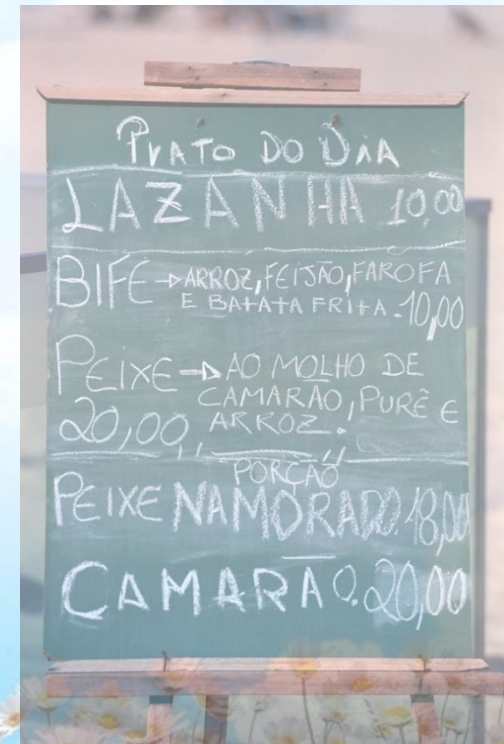 PRATO DO DIA
LAZANHA 10,00
BIFE → ARROZ, FEIJÃO, FAROFA
E BATATA FRITA - 10,00
PEIXE → AO MOLHO DE
CAMARÃO, PURÊ E
20,00,, ARROZ. ,,
PORÇÃO
PEIXE NAMORADO. 18,00
CAMARAO. 20,00